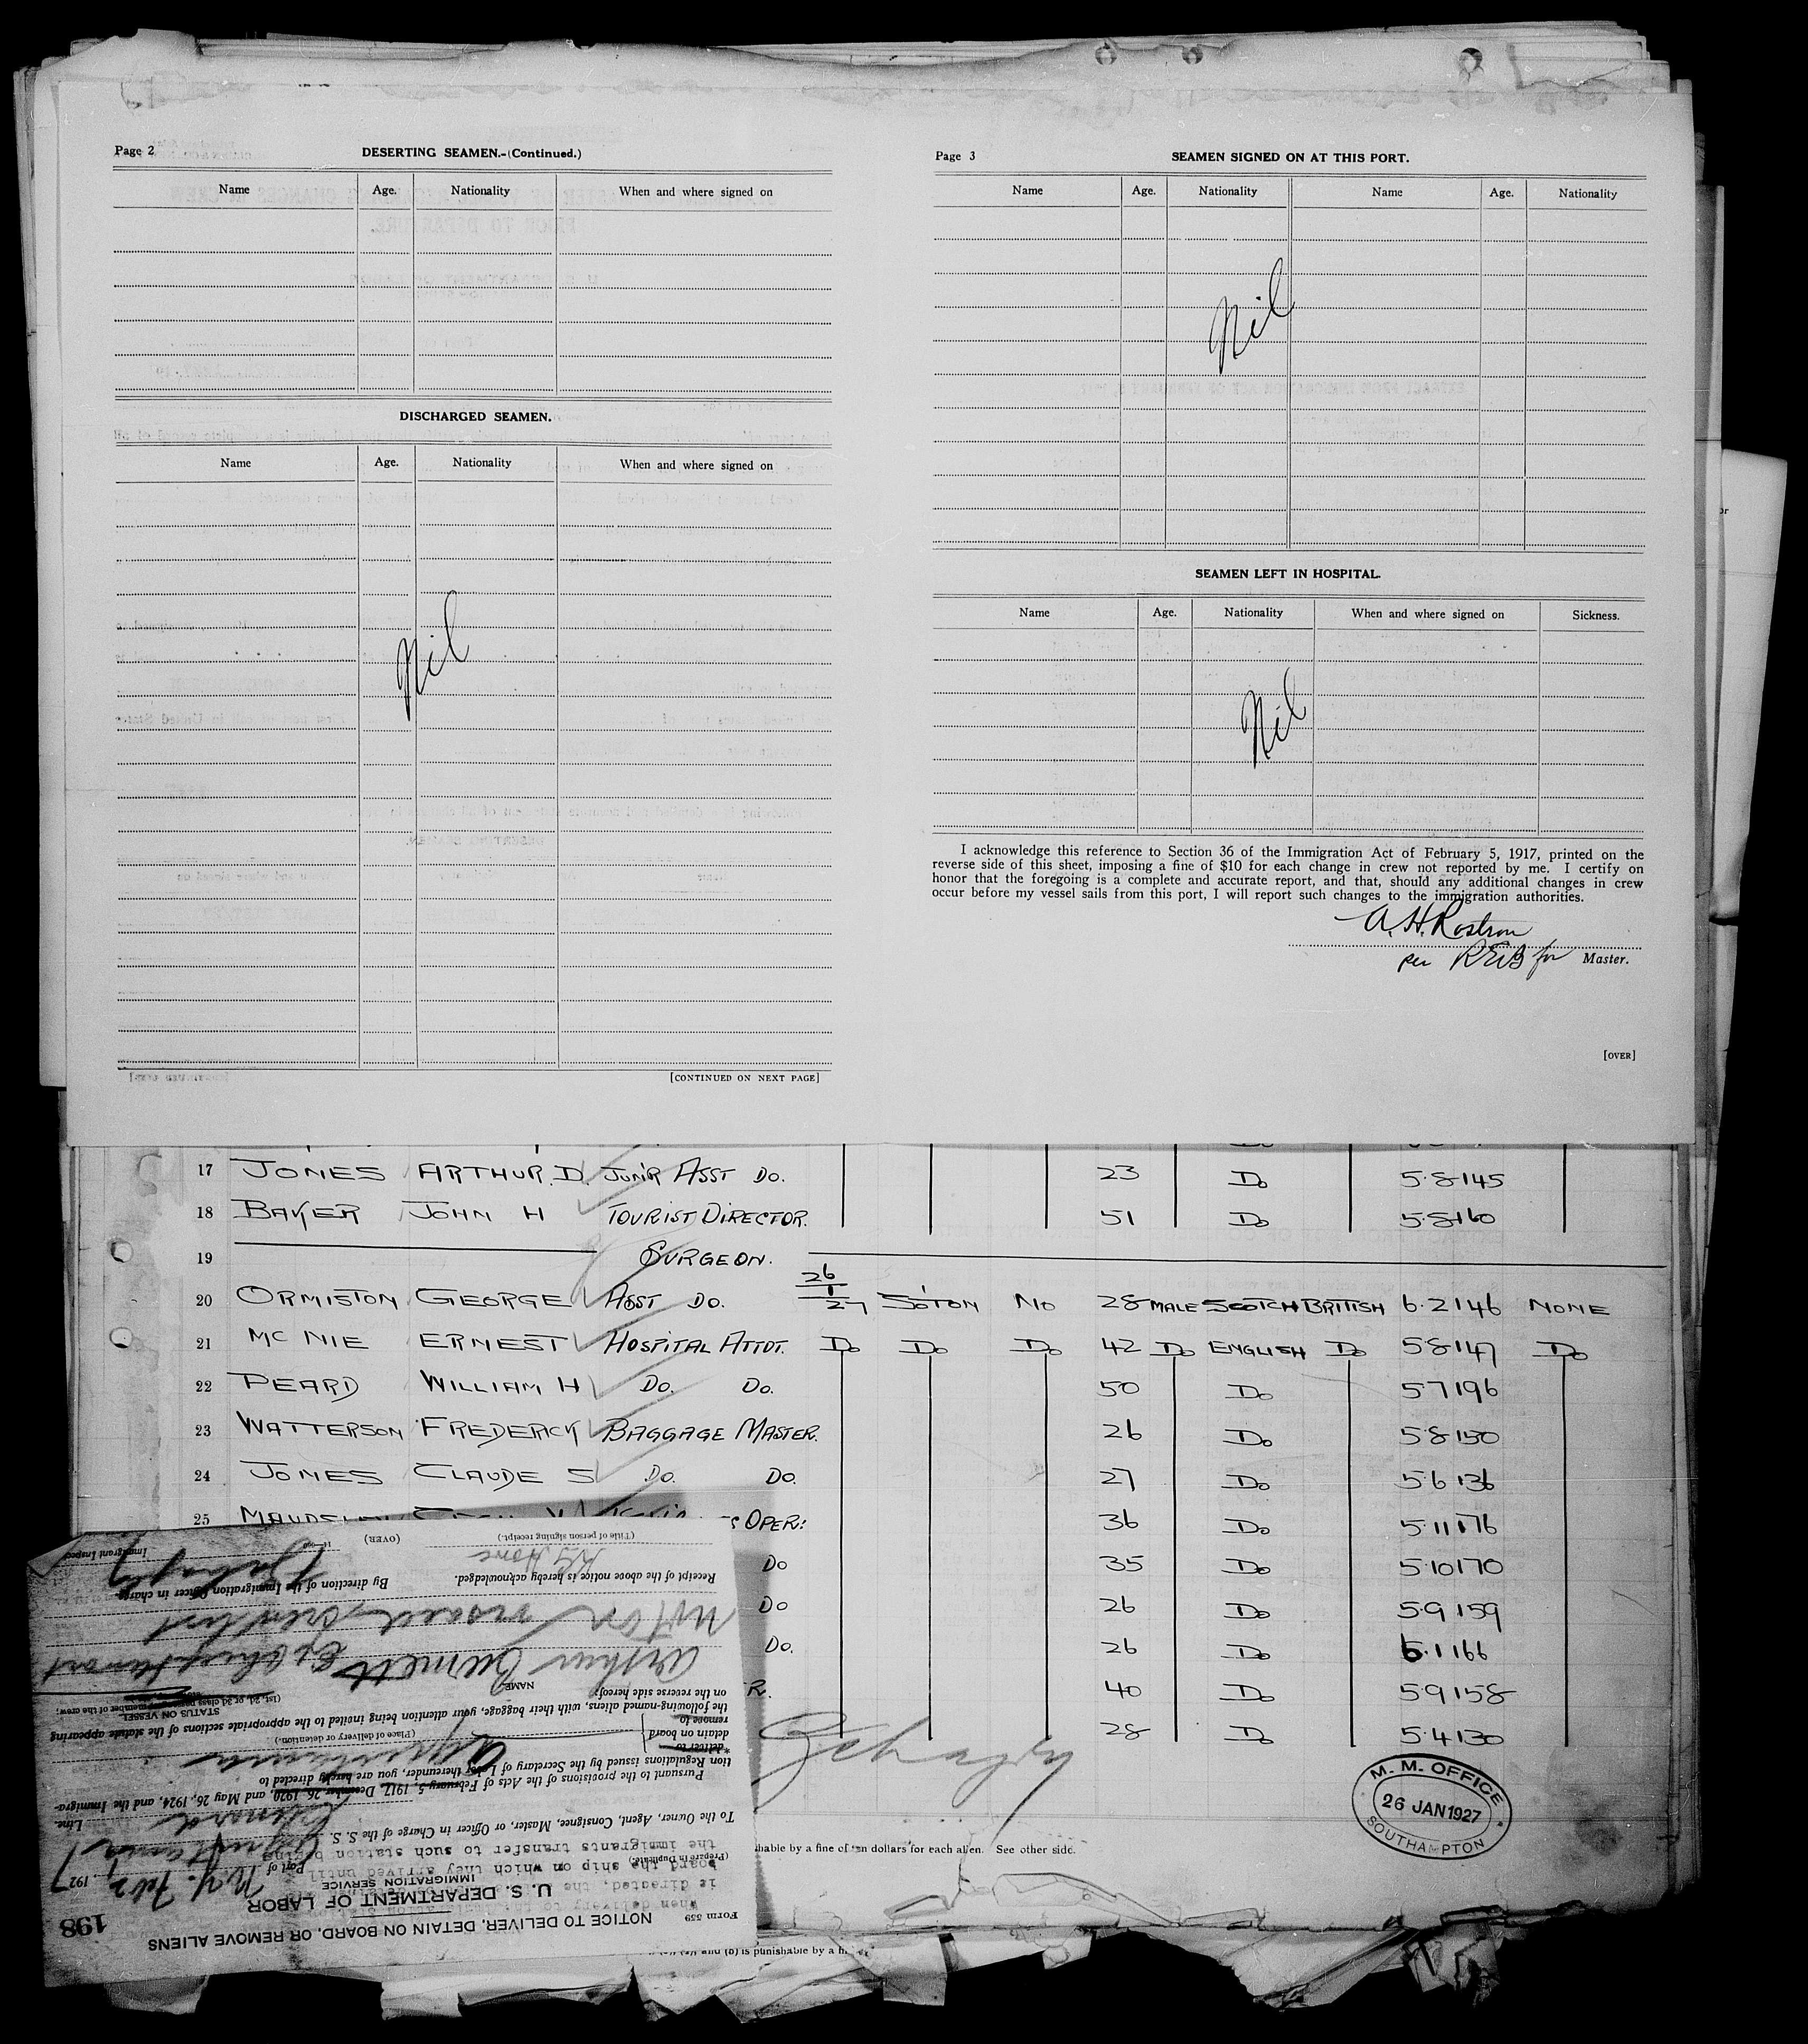 Page 2
DESERTING SEAMEN.-(Continued.)
Name Age. Nationality When and where signed on
DISCHARGED SEAMEN.
Name Age. Nationality When and where signed on
Nil
[CONTINUED ON NEXT PAGE]
Page 3
SEAMEN SIGNED ON AT THIS PORT.
Name Age. Nationality Name Age. Nationality
Nil
SEAMEN LEFT IN HOSPITAL.
Name Age. Nationality When and where signed on Sickness.
Nil
I acknowledge this reference to Section 36 of the Immigration Act of February 5, 1917, printed on the
reverse side of this sheet, imposing a fine of $10 for each change in crew not reported by me. I certify on
honor that the foregoing is a complete and accurate report, and that, should any additional changes in crew
occur before my vessel sails from this port, I will report such changes to the immigration authorities.
A. H. Rostron
per for Master.
[OVER]
17 JONES ARTHUR. D. JUNR ASST DO. 23 Do 5·8 145
18 BAKER JOHN H TOURIST DIRECTOR. 51 Do 5·8 160
19 SURGEON.
20 ORMISTON GEORGE ASST DO. 26/1/27 SOTON NO 28 MALE SCOTCH BRITISH 6·2 146 NONE
21 MC NIE ERNEST HOSPITAL ATTDT. Do Do Do 42 Do ENGLISH Do 5·8 147 Do
22 PEARD WILLIAM H DO. DO. 50 Do 5·7 196
23 WATTERSON FREDERICK BAGGAGE MASTER. 26 Do 5·8 150
24 JONES CLAUDE S DO. DO. 27 Do 5·6 136
25 OPER: 36 Do 5·11 176
DO 35 Do 5·10 170
DO 26 Do 5·9 159
DO. 26 Do 6·1 166
R. 40 Do 5·9 158
28 Do 5·4 130
M. M. OFFICE
26 JAN 1927
SOUTHAMPTON
hable by a fine of ten dollars for each alien. See other side.
and (b) is punishable by a
198
Form 559
NOTICE TO DELIVER, DETAIN ON BOARD, OR REMOVE ALIENS
U. S. DEPARTMENT OF LABOR
IMMIGRATION SERVICE
(Prepare in Duplicate)
Port of N.Y. Feb 2 1927
To the Owner, Agent, Consignee, Master, or Officer in Charge of the S. S.
Cunard Line.
Pursuant to the provisions of the Acts of February 5, 1917, December 26, 1920, and May 26, 1924, and the Immigra-
tion Regulations issued by the Secretary of Labor thereunder, you are hereby directed to
deliver to
detain on board
remove to
(Place of delivery or detention.)
the following-named aliens, with their baggage, your attention being invited to the appropriate sections of the statute appearing
on the reverse side hereof:
NAME
STATUS ON VESSEL
(1st, 2d, or 3d class passenger, member of the crew;
Arthur Burnett
not on visaed crew list
By direction of the Immigration Officer in charge.
Receipt of the above notice is hereby acknowledged.
Immigrant Inspector
(Title of person signing receipt.)
(OVER)